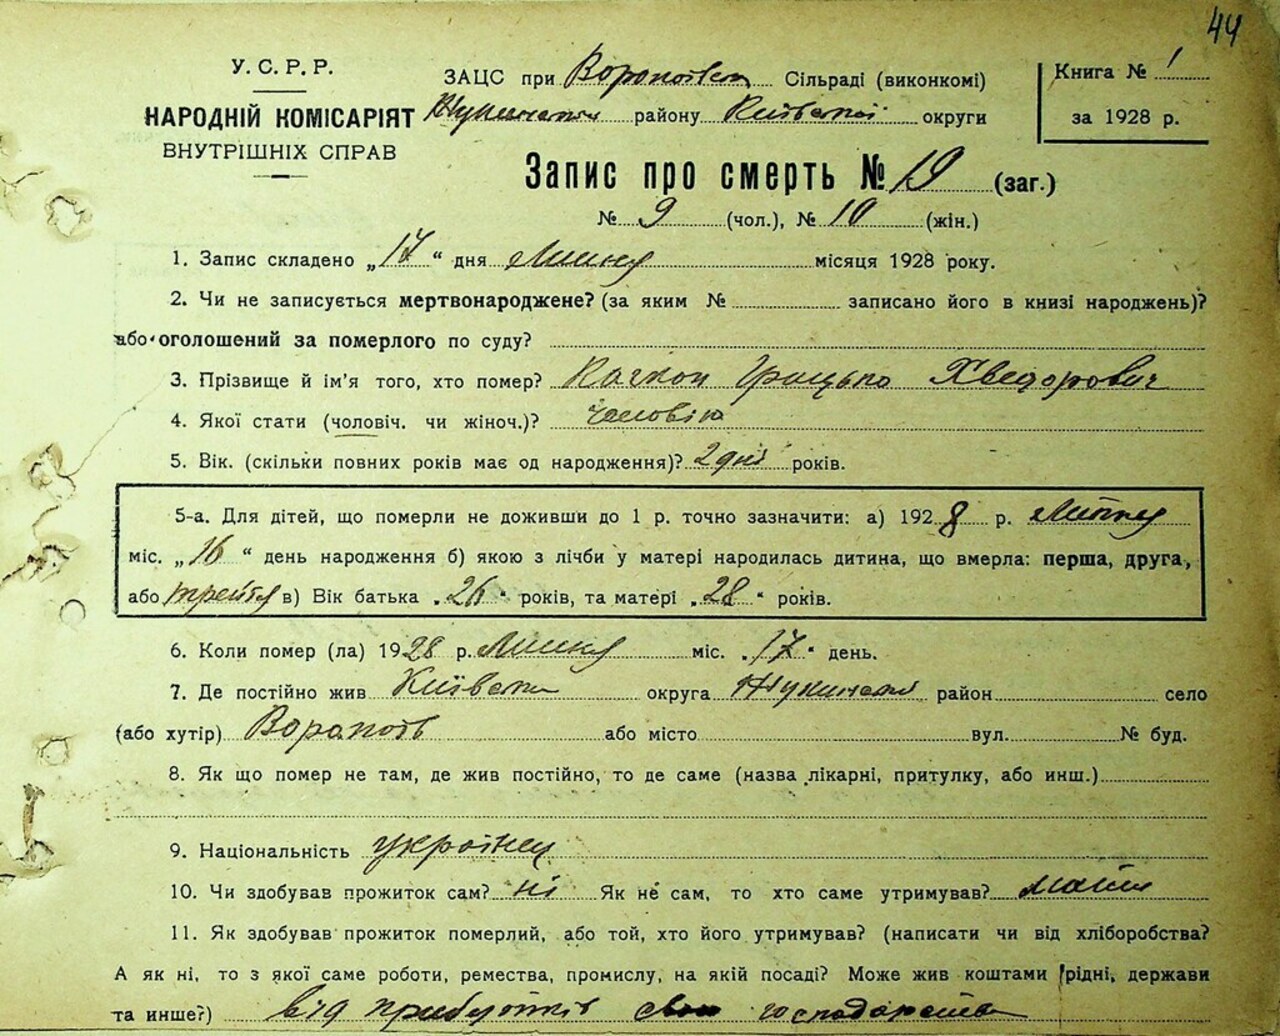 44
У.С.Р.Р.
НАРОДНІЙ КОМІСАРІЯТ
ВНУТРІШНІХ СПРАВ
ЗАЦС при Сільраді (виконкомі)
району Київської округи
Книга № 1
за 1928 р.
Запис про смерть № 19 (заг.)
№ 9 (чол.), № 10 (жін.)
1. Запис складено „17“ дня Липня місяця 1928 року.
2. Чи не записується мертвонароджене? (за яким № записано його в книзі народжень)?
або оголошений за померлого по суду?
3. Прізвище й ім'я того, хто помер? Грицько Хведорович
4. Якої стати (чоловіч. чи жіноч.)? чоловік
5. Вік. (скільки повних років має од народження)? 2 дні років.
5-а. Для дітей, що померли не доживши до 1 р. точно зазначити: а) 1928 р. Липня
міс. „16“ день народження б) якою з лічби у матері народилась дитина, що вмерла: перша, друга,
або третя в) Вік батька „26“ років, та матері „28“ років.
6. Коли помер (ла) 1928 р. Липня міс. „17“ день.
7. Де постійно жив Київська округа район село
(або хутір) або місто вул. № буд.
8. Як що помер не там, де жив постійно, то де саме (назва лікарні, притулку, або инш.)
9. Національність українец
10. Чи здобував прожиток сам? ні Як не сам, то хто саме утримував? мати
11. Як здобував прожиток померлий, або той, хто його утримував? (написати чи від хліборобства?
А як ні, то з якої саме роботи, ремества, промислу, на якій посаді? Може жив коштами рідні, держави
та инше?) від господарства